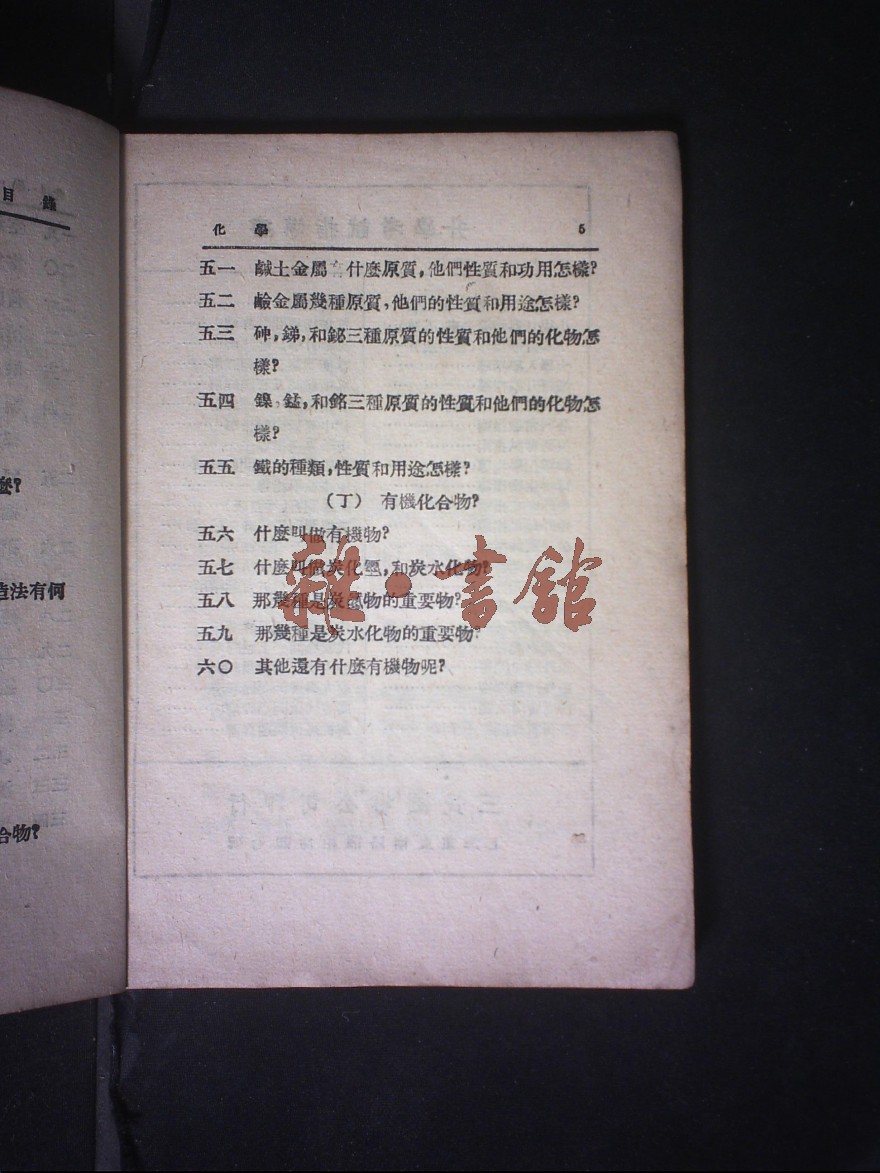 目 錄
麼?
造法有何
合物?
化 學 5
五一 鹹土金屬有什麼原質,他們性質和功用怎樣?
五二 鹼金屬幾種原質,他們的性質和用途怎樣?
五三 砷,銻,和鉍三種原質的性質和他們的化物怎
樣?
五四 鎳,錳,和鉻三種原質的性質和他們的化物怎
樣?
五五 鐵的種類,性質和用途怎樣?
(丁) 有機化合物?
五六 什麼叫做有機物?
五七 什麼叫做炭化氫,和炭水化物?
五八 那幾種是炭氫物的重要物?
五九 那幾種是炭水化物的重要物?
六〇 其他還有什麼有機物呢?
雜·書館